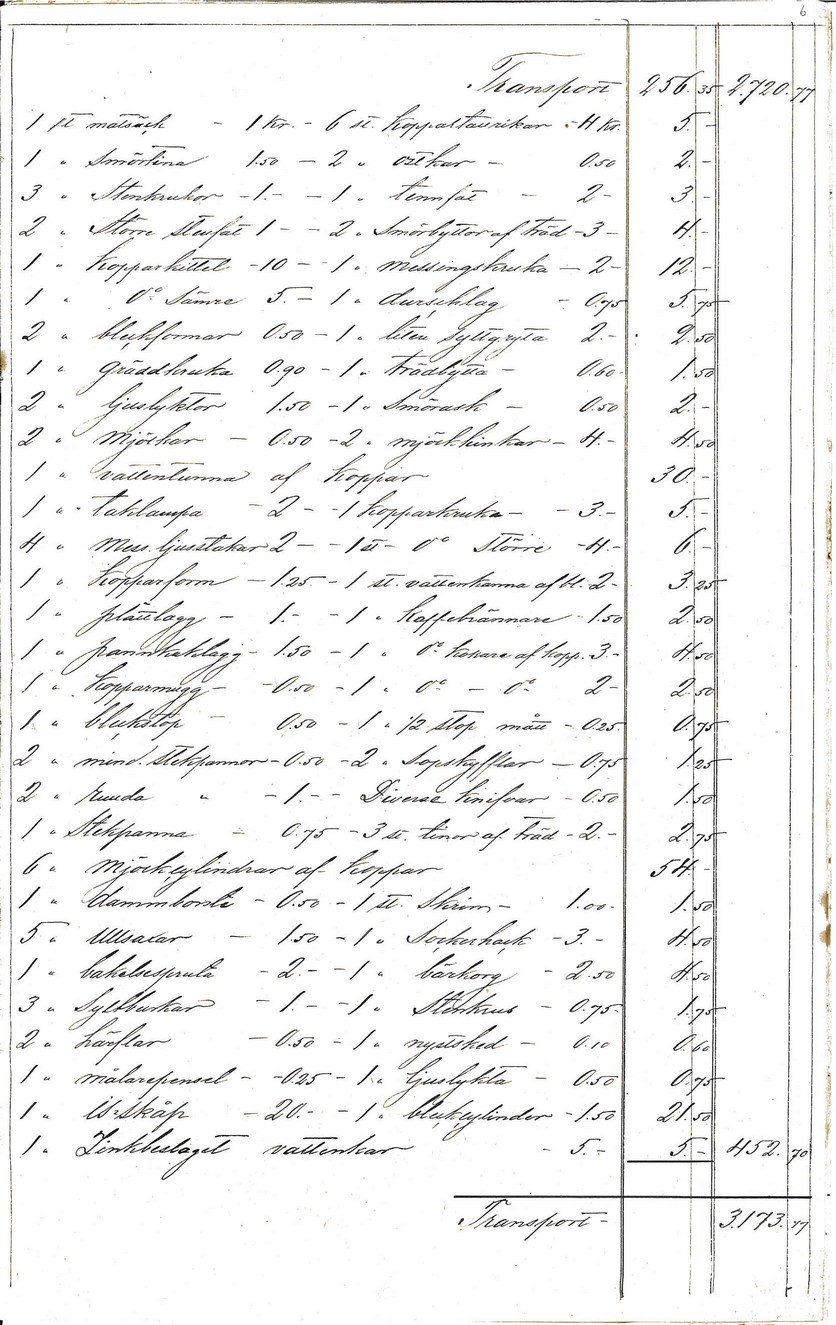 6
Transport 256.35 2.720.77
1 st matsäck - 1 Kr. - 6 st. koppartaurikar - 4 Kr. 5.-
1 " Smörtina 1.50 - 2 " ostkar - 0.50 2.-
3 " Stenkrukor - 1.- - 1 " tennfat - 2- 3.-
2 " Större stenfat 1 - - 2 " Smörbyttor af träd - 3 - 4.-
1 " Kopparkittel - 10 - - 1 " messingskruka - 2 - 12.-
1 " do sämre 5.- - 1 " durschlag - 0.75 5.75
2 " bleckformar 0.50 - 1 " liten syltgryta 2.- 2.50
1 " gräddkruka 0.90 - 1 " trädbytta - 0.60 1.50
2 " ljuslyktor 1.50 - 1 " Smörask - 0.50 2.-
2 " Mjöskar - 0.50 - 2 " mjölkhinkar - 4.- 4.50
1 " vattentunna af koppar 30.-
1 " taklampa - 2 - - 1 Kopparkruka - - 3.- 5.-
4 " Mess. ljusstakar 2 - - 1 st - do större - 4.- 6.-
1 " Kopparform - 1.25 - 1 st. vattenkanna af bl. 2 - 3.25
1 " plättlagg - 1.- - 1 " Kaffebrännare - 1.50 2.50
1 " pannkakslagg - 1.50 - 1 " do kokare af kopp. 3.- 4.50
1 " Kopparmugg - - 0.50 - 1 " do - do 2 - 2.50
1 " bleckstop - 0.50 - 1 " 1/2 stop mått - 0.25 0.75
2 " mind. stekpannor - 0.50 - 2 " Sopskyfflar - 0.75 1.25
2 " runda " - 1.- - Diverse knifvar - 0.50 1.50
1 " Stekpanna - 0.75 - 3 st. tinor af träd - 2.- 2.75
6 " Mjölkcylindrar af koppar 54.-
1 " dammborste - 0.50 - 1 st. Skrin - 1.00 1.50
5 " Ullsaxar - 1.50 - 1 " Sockerhack - 3.- 4.50
1 " bakelsespruta - 2.- - 1 " bärkorg - 2.50 4.50
3 " Syltburkar - 1.- - 1 " Stenkrus - 0.75 1.75
2 " härflar - 0.50 - 1 " nystsked - 0.10 0.60
1 " målarepensel - - 0.25 - 1 " ljuslykta - 0.50 0.75
1 " is-skåp - 20.- - 1 " bleckcylinder - 1.50 21.50
1 " Zinkbeslaget vattenkar - 5.- 5.- 452.70
Transport - 3.173.77